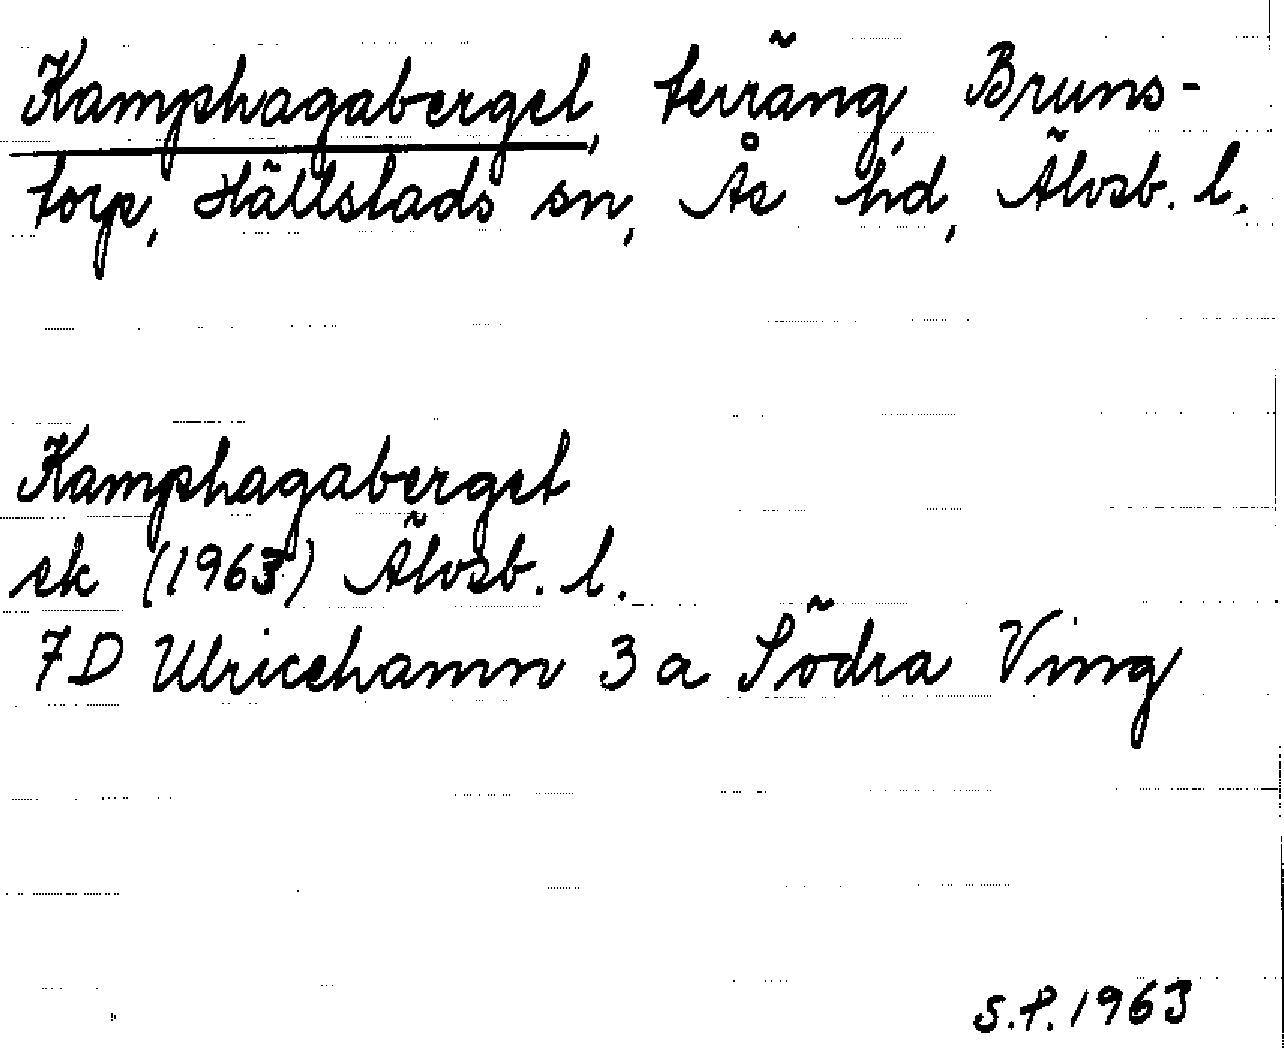 Kamphagaberget, terräng, Bruns-
torp, Hällstads sn, Ås hd, Älvsb. l.
Kamphagaberget
ek (1963) Älvsb. l.
7D Ulricehamn 3 a Södra Ving
S.P. 1963